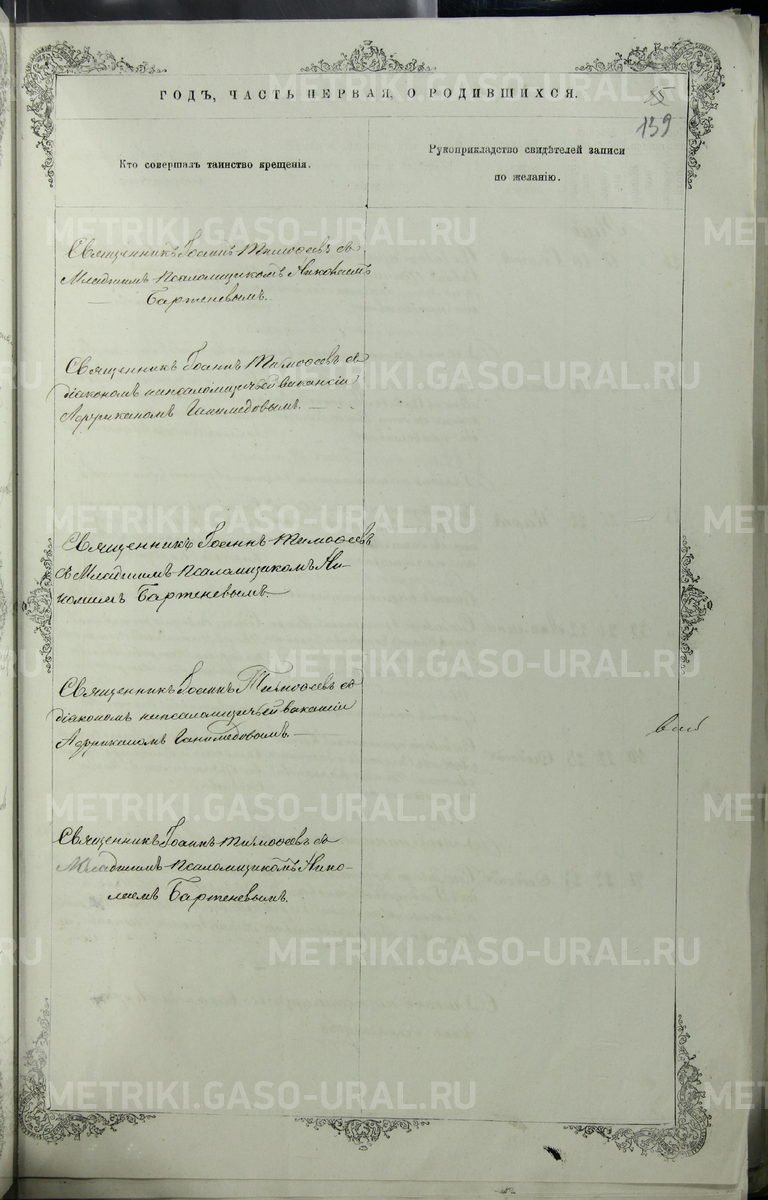 ГОДЪ, ЧАСТЬ ПЕРВАЯ, О РОДИВШИХСЯ.
139
Кто совершалъ таинство крещенія.
Рукоприкладство свидѣтелей записи
по желанію.
Священникъ Іоаннъ Тимоѳеевъ съ
Младшимъ Псаломщикомъ Николаемъ
Барженевымъ.
Священникъ Іоаннъ Тимоѳеевъ съ
діакономъ на псаломщичьей вакансіи
Африканомъ Ганимедовымъ.
Священникъ Іоаннъ Тимоѳеевъ
съ Младшимъ Псаломщикомъ Ни-
колаемъ Барженевымъ.
Священникъ Іоаннъ Тимоѳеевъ съ
діакономъ на псаломщичьей вакансіи
Африканомъ Ганимедовымъ.
Священникъ Іоаннъ Тимоѳеевъ съ
Младшимъ Псаломщикомъ Нико-
лаемъ Барженевымъ.
METRIKI.GASO-URAL.RU